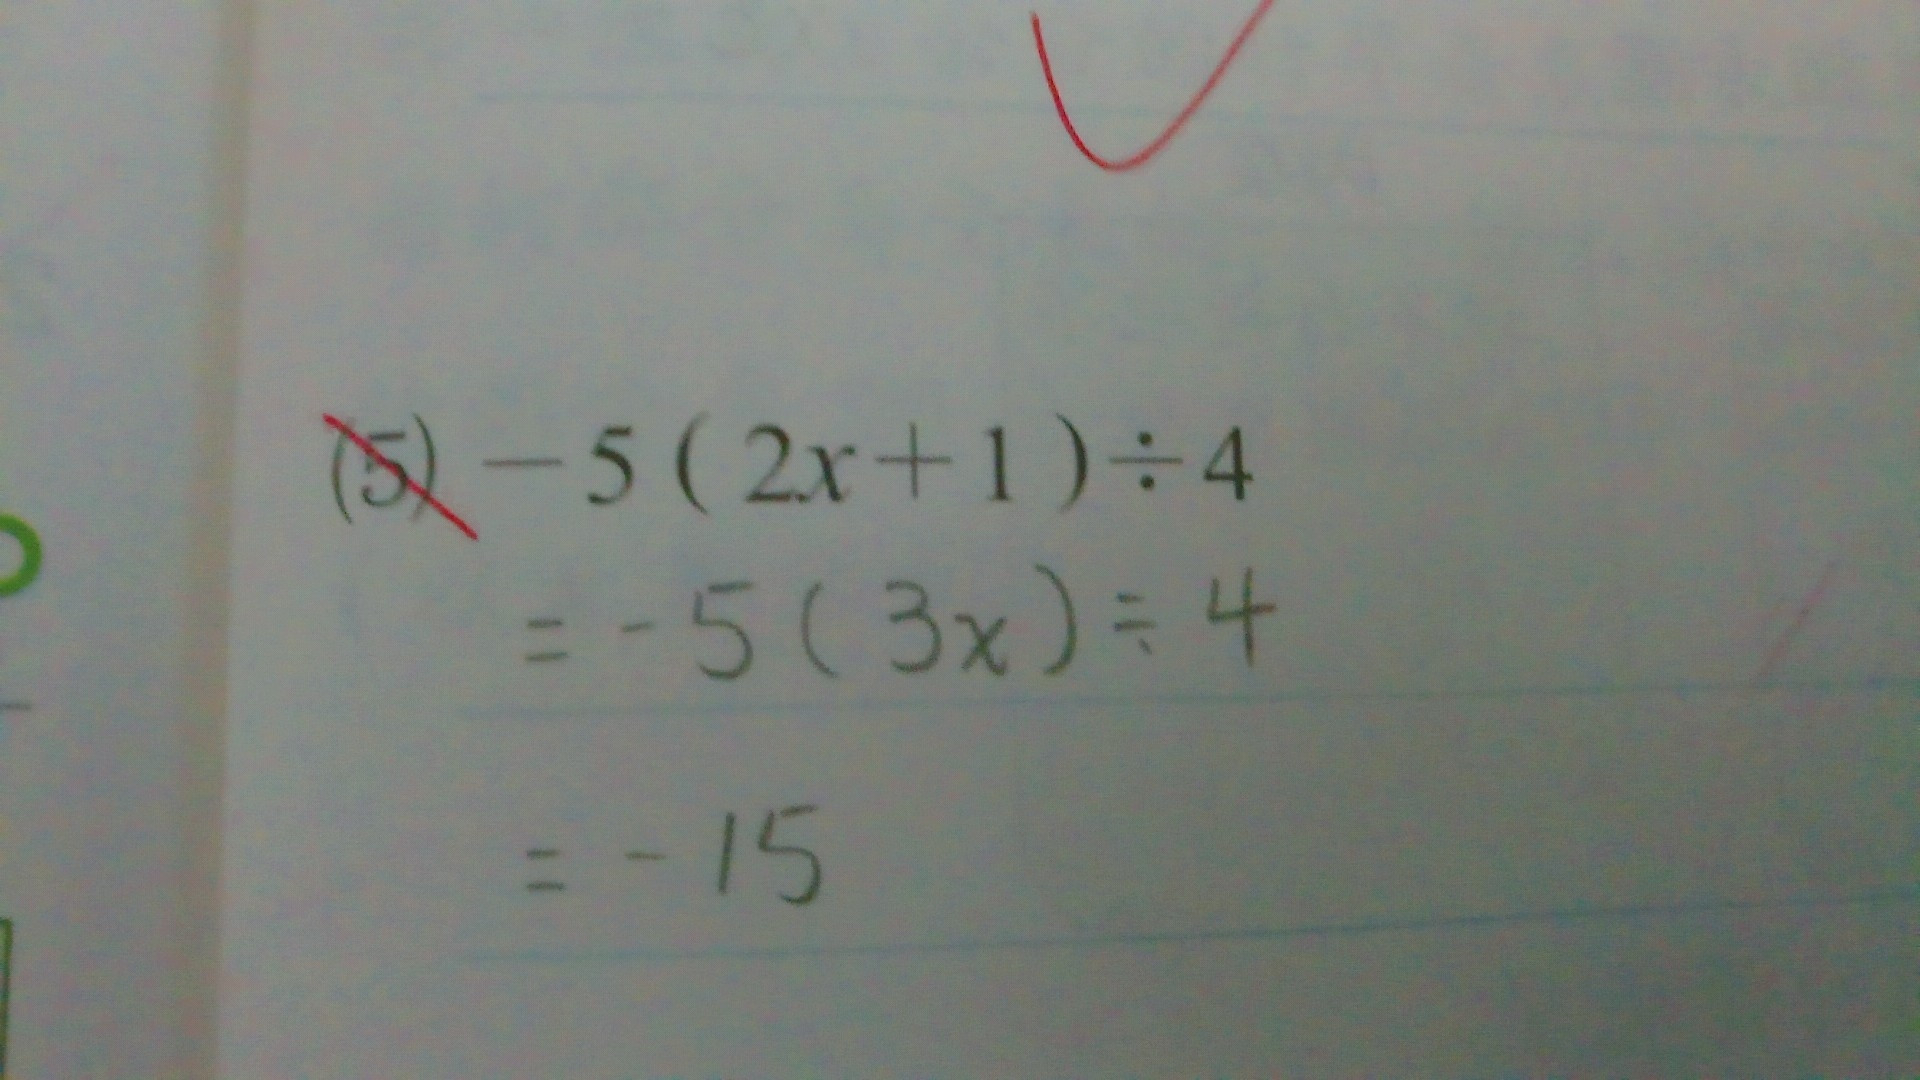 (5) −5(2x+1)÷4
= -5(3x)÷4
= -15